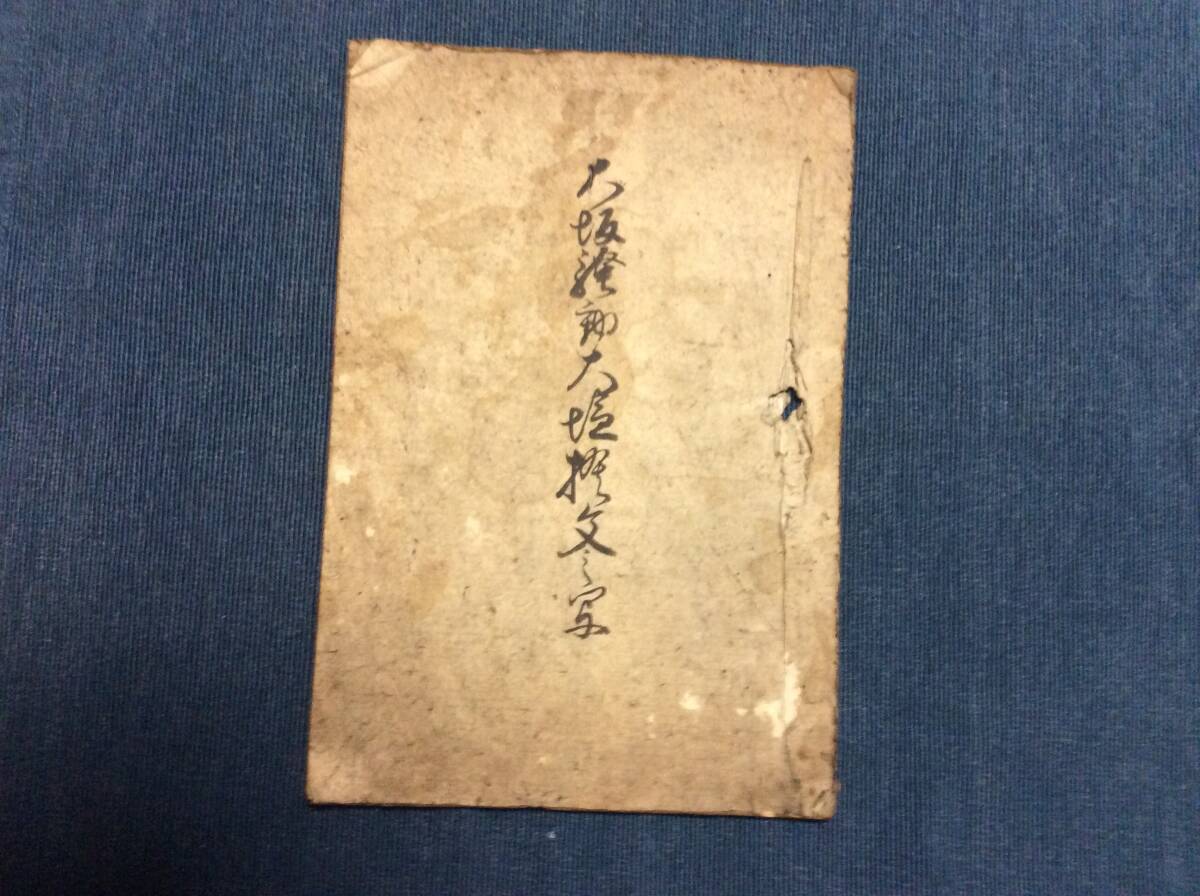 大坂騒動大塩檄文之写